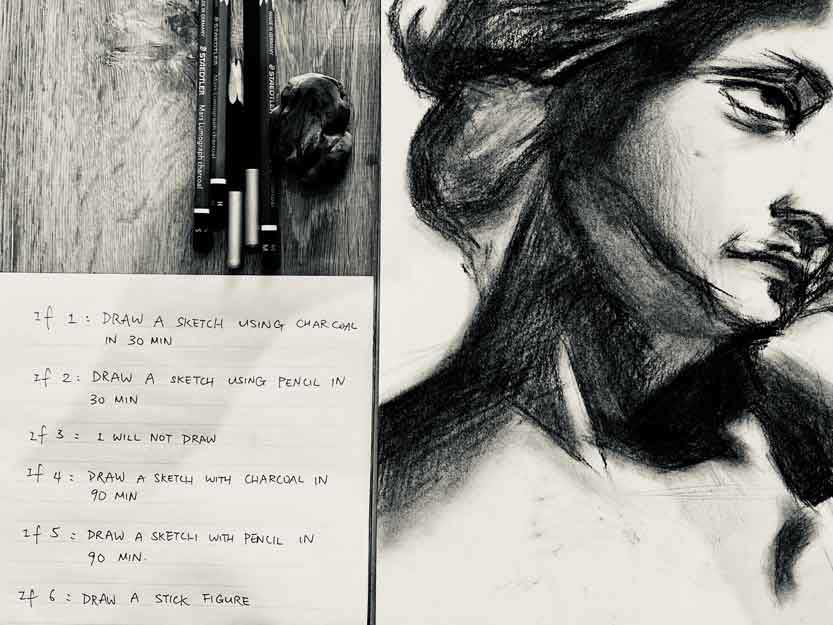 STAEDTLER Mars Lumograph charcoal
STAEDTLER
STAEDTLER
If 1 : DRAW A SKETCH USING CHARCOAL
IN 30 MIN
If 2 : DRAW A SKETCH USING PENCIL IN
30 MIN
If 3 = I WILL NOT DRAW
If 4 : DRAW A SKETCH WITH CHARCOAL IN
90 MIN
If 5 : DRAW A SKETCH WITH PENCIL IN
90 MIN.
If 6 : DRAW A STICK FIGURE